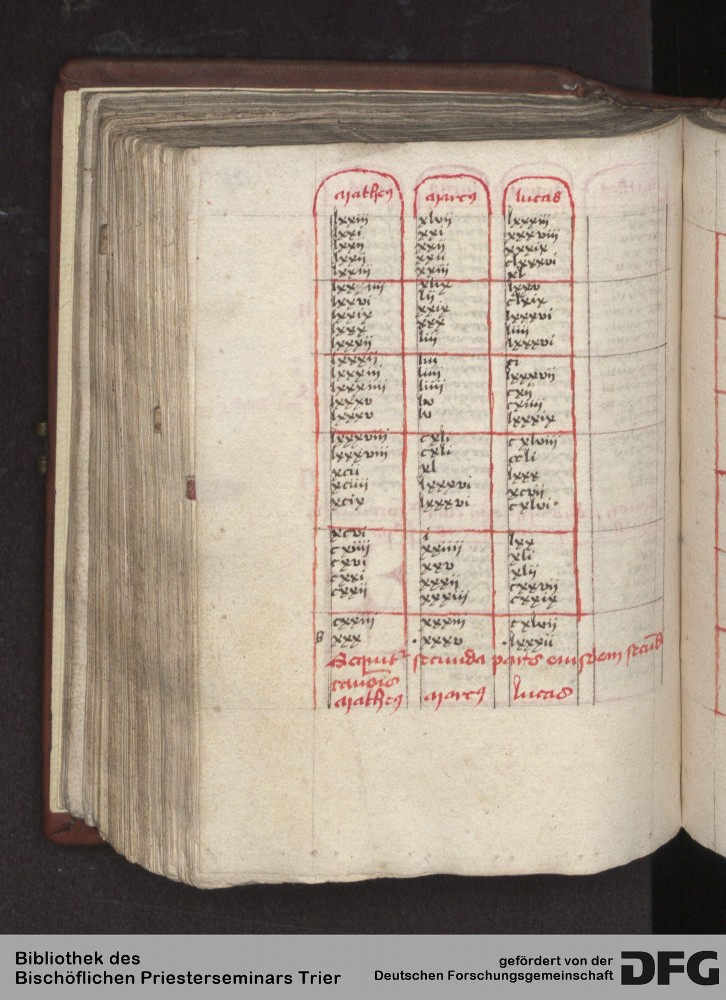 Matheus Marcus lucas
lxxiii xlvii lxxxiii
lxxi xxi xxxviii
lxxii xxii xxxix
lxxii xxii clxxxvi
lxxiii xxiii xl
lxxiiii xlix lxxv
lxxvi lii clxix
lxxix xxix lxxxvi
lxxx xxx iiii
lxxxii liii lxxxvi
lxxxii liii
lxxxiii liiii lxxxvii
lxxxiiii liiii cxii
lxxxv lv cxiiii
lxxxv lv lxxxix
lxxxviii cxli cxlviii
lxxxviii cxli ccli
xcii xl lxxx
xciiii lxxxvi xcvii
xcix lxxxvi cxlvi
xcvi i lxx
cxiiii xxiiii xli
cxvi xxv xlii
cxxi xxxii cxxvii
cxxii xxxiii cxxix
cxxiii xxxiii cxlvii
xxx xxxv lxxxii
Sequitur secunda pars eiusdem secundi
canonis
Matheus Marcus lucas
Bibliothek des
Bischöflichen Priesterseminars Trier
gefördert von der
Deutschen Forschungsgemeinschaft
DFG